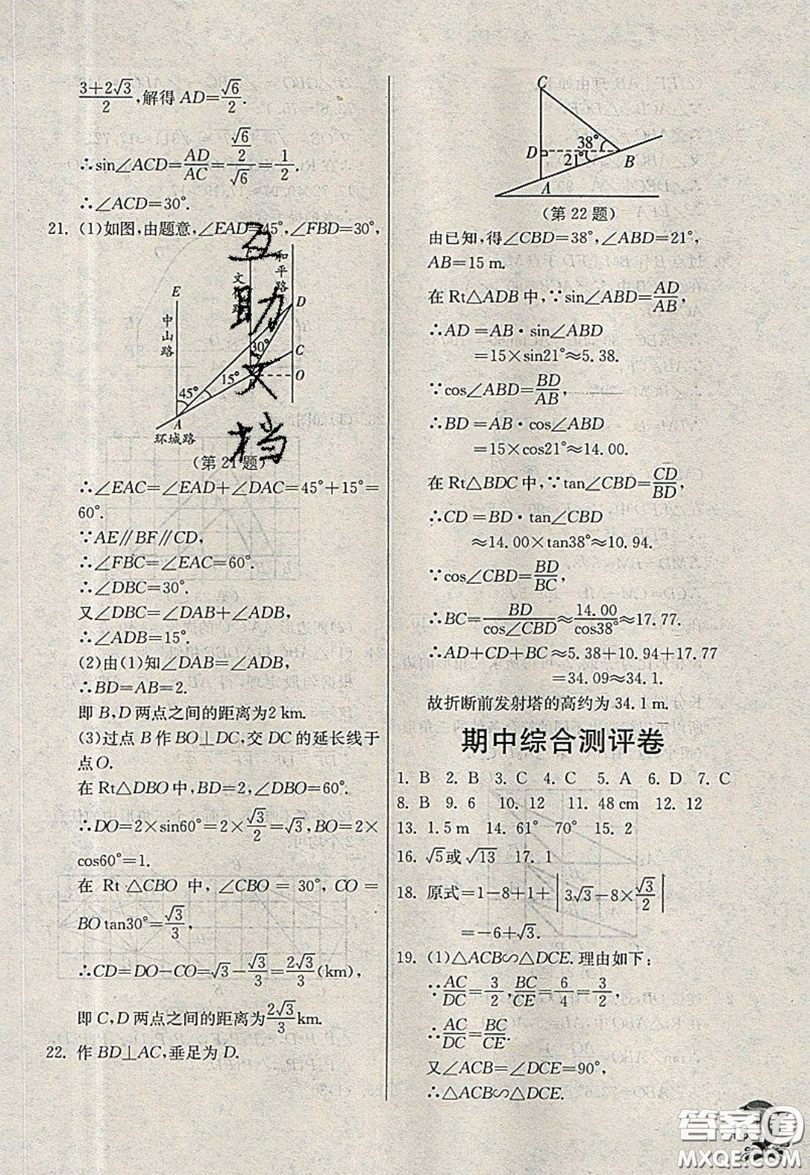 3+2√3/2,解得 AD=√6/2.
∴sin∠ACD=AD/AC=(√6/2)/√6=1/2.
∴∠ACD=30°.
21. (1)如图,由题意,∠EAD=45°,∠FBD=30°,
E
中山路
和平路
D
C
O
30°
15°
45°
A
环城路
(第21题)
∴∠EAC=∠EAD+∠DAC=45°+15°=
60°.
∵AE∥BF∥CD,
∴∠FBC=∠EAC=60°.
∴∠DBC=30°.
又∠DBC=∠DAB+∠ADB,
∴∠ADB=15°.
(2)由(1)知∠DAB=∠ADB,
∴BD=AB=2.
即 B,D 两点之间的距离为2 km.
(3)过点 B 作 BO⊥DC,交 DC 的延长线于
点O.
在 Rt△DBO 中,∵BD=2,∠DBO=60°,
∴DO=2×sin60°=2×√3/2=√3,BO=2×
cos60°=1.
在 Rt△CBO 中,∠CBO=30°,CO=
BOtan30°=√3/3,
∴CD=DO-CO=√3-√3/3=2√3/3(km).
即 C,D 两点之间的距离为2√3/3 km.
22. 作 BD⊥AC,垂足为 D.
互助文档
C
38°
D
21°
B
A
(第22题)
由已知,得∠CBD=38°,∠ABD=21°,
AB=15 m.
在 Rt△ADB 中,∵sin∠ABD=AD/AB,
∴AD=AB·sin∠ABD
=15×sin21°≈5.38.
∵cos∠ABD=BD/AB,
∴BD=AB·cos∠ABD
=15×cos21°≈14.00.
在 Rt△BDC 中,∵tan∠CBD=CD/BD,
∴CD=BD·tan∠CBD
≈14.00×tan38°≈10.94.
∵cos∠CBD=BD/BC,
∴BC=BD/cos∠CBD≈14.00/cos38°≈17.77.
∴AD+CD+BC≈5.38+10.94+17.77
=34.09≈34.1.
故折断前发射塔的高约为 34.1 m.
期中综合测评卷
1. B 2. B 3. C 4. C 5. A 6. D 7. C
8. B 9. 6 10. 12 11. 48 cm 12. 12
13. 1.5 m 14. 61° 70° 15. 2
16. √5或√13 17. 1
18. 原式=1-8+1+|3√3-8×√3/2|
=-6+√3.
19. (1)△ACB∽△DCE. 理由如下:
∵AC/DC=3/2,BC/CE=6/4=3/2,
∴AC/DC=BC/CE.
又∠ACB=∠DCE=90°,
∴△ACB∽△DCE.
答案圈
MXQE.COM